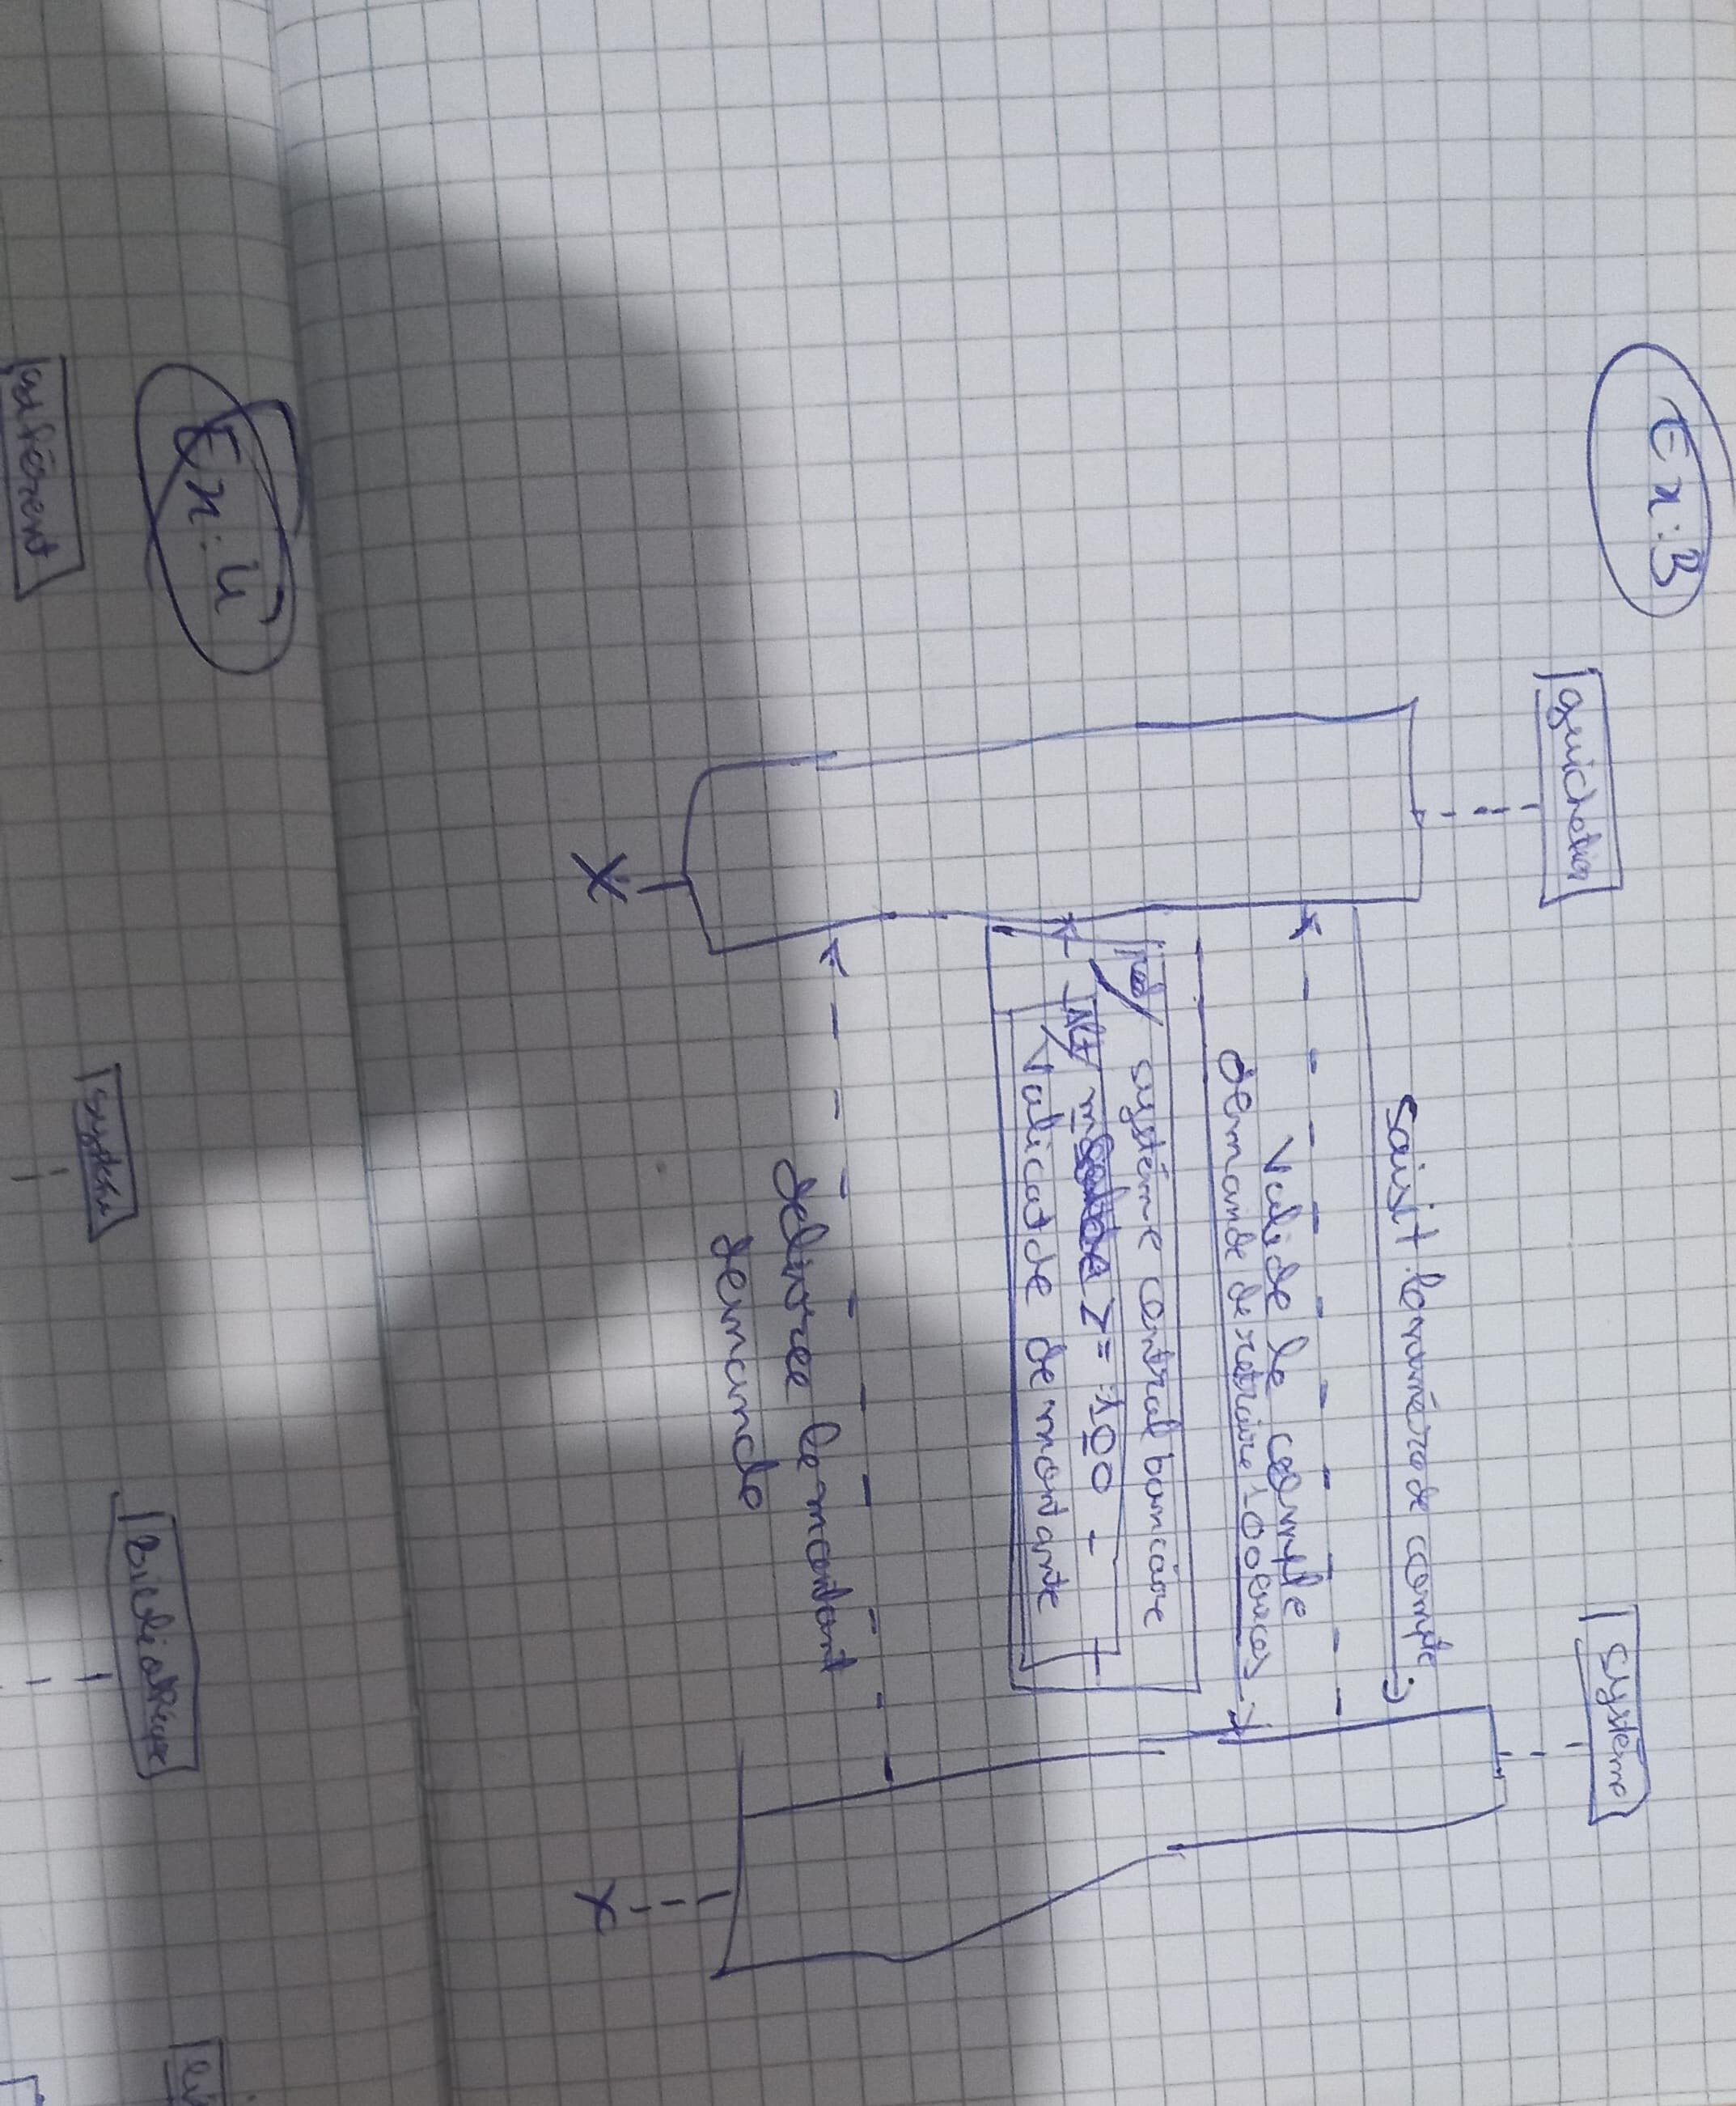 Ex:3
guichetier
système
saisit le numéro de compte
valide le compte
demande de retraire 100 euros
ref système central bancaire
Alt >= 100
validat de de montante
delivree le montant
demande
Ex:4
adhérent
système